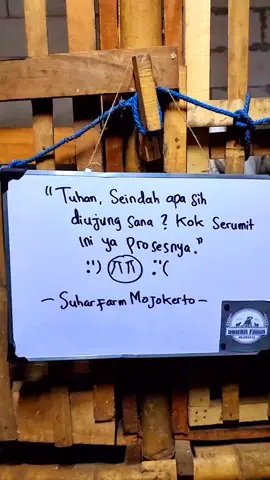 "Tuhan, Seindah apa sih
diujung sana? Kok Serumit
ini ya prosesnya."
:') :'(
- SuharFarm Mojokerto -
SUHAR FARM
MOJOKERTO